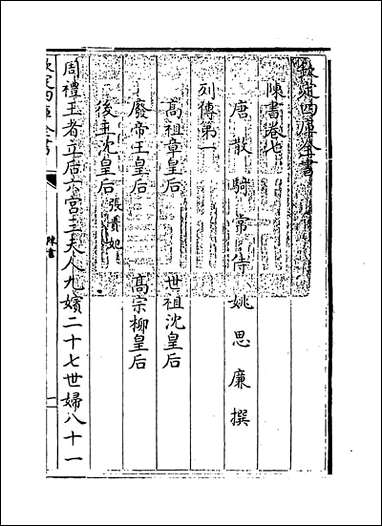 欽定四庫全書
陳書卷七
唐散騎常侍姚思廉撰
列傳第一
高祖章皇后　世祖沈皇后
廢帝王皇后　高宗柳皇后
後主沈皇后　張貴妃
周禮王者立后六宮三夫人九嬪二十七世婦八十一
欽定四庫全書　陳書　一